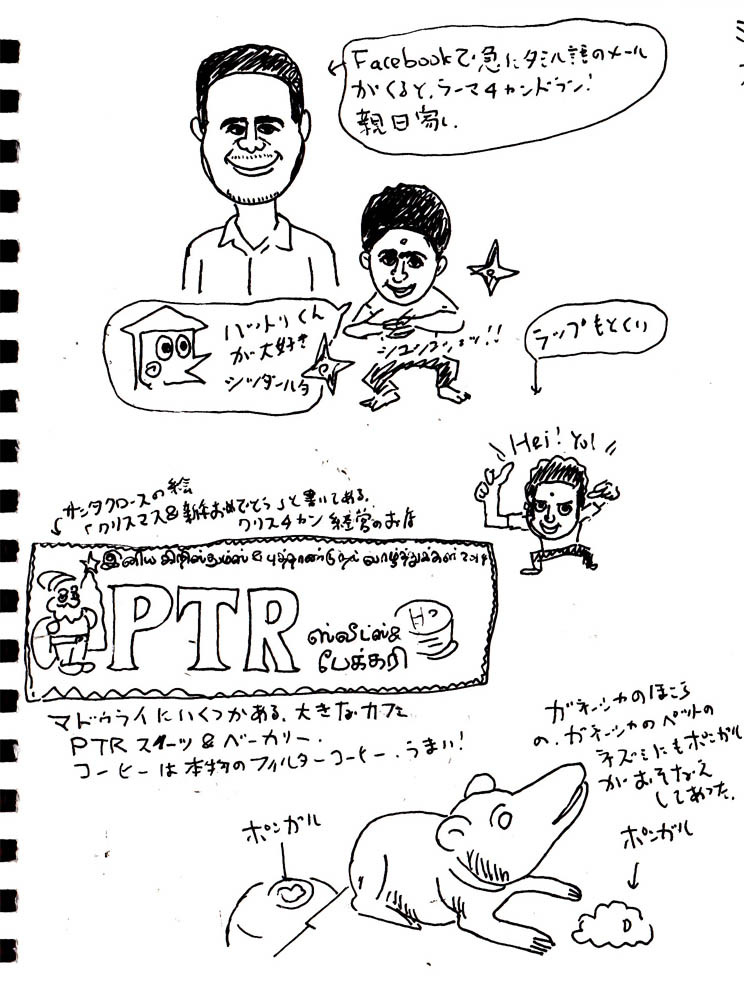 Facebookで急にタミル語のメール
がくると、ラーマ4カンドラン!
親日家し、
ハットリくん
が大好き
シッダールタ
シュッシュッ!!
ラップもとくい
Hei! Yo!
サンタクロースの絵
「クリスマス&新年おめでとう」と書いてある。
クリス4カン経営のお店
இனிய கிறிஸ்துமஸ் & புத்தாண்டு நல் வாழ்த்துக்கள் 2014
PTR
ஸ்வீட்ஸ் &
பேக்கரி
マドゥライにいくつかある、大きなカフェ
PTRスイーツ&ベーカリー.
コーヒーは本物のフィルターコーヒー、うまい!
ガネーシャのほこら
の、ガネーシャのペットの
ネズミにもポンガル
がおそなえ
してあった。
ポンガル
ポンガル